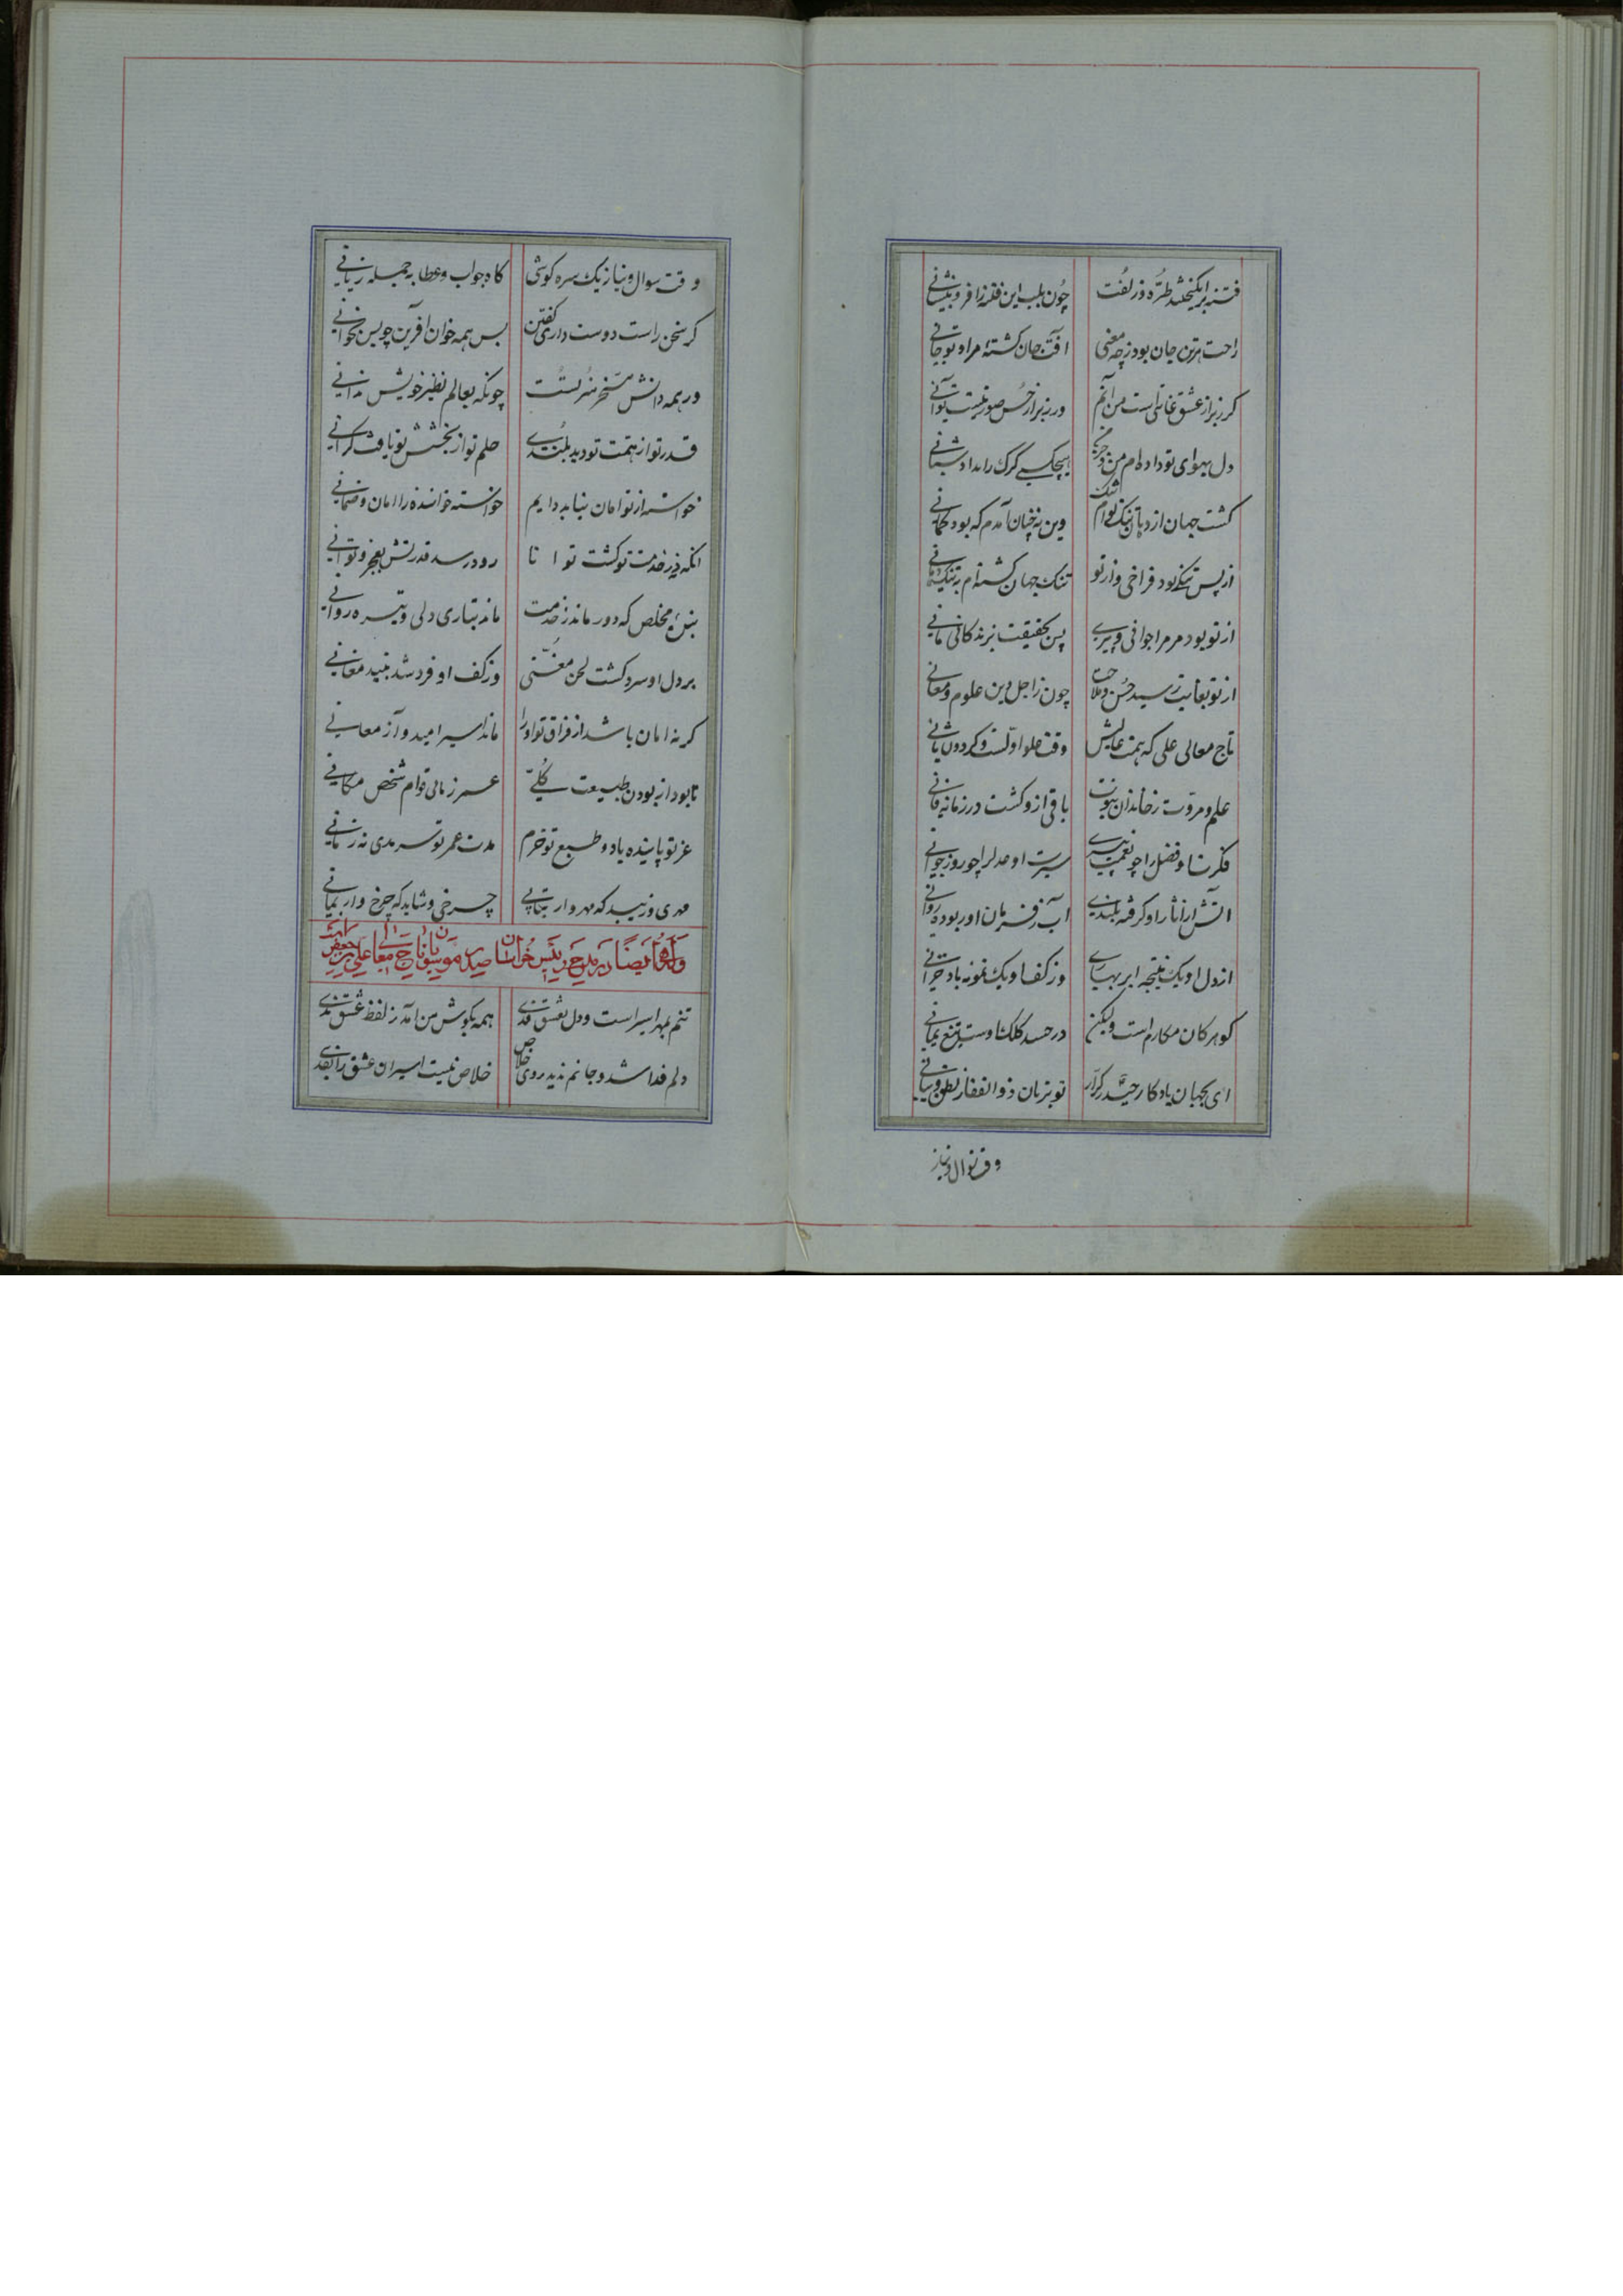 فتنه برانکیختند طره و زلفت چون بلب این فتنه را فرو بنشانی
راحت هر تن جان بود ز چه معنی افت جان کشته مرا و تو جانی
کر ز بر از عشق غایتی است من آنم ور ز بر از حسن صورتیست تو آنی
دل بهوای تو داده‌ام من و هیچکسی کرک را نداد شبانی
کشت جهان از دهان تنک توام تنک وین نه چنان آمدم که بود کمانی
از پس تنکی بود فراخی و از تو تنک جهان کشته‌ام به تنک دهانی
از تو بود مر مرا جوانی و پیری پس بحقیقت بزندکانی مانی
از تو بغایت رسید حسن و ملاحت چون ز اجل دین علوم و معانی
تاج معالی علی که همت عالیش وقت علو اولست و کردون ثانی
علم و مروت ز خاندان نبوت باقی ازو کشت در زمانه فانی
فکرت او فضل را چو نعمت پیری سیرت او عدل را چو روز جوانی
اتش از اثار او کرفته بلندی اب ز فرمان او ربوده روانی
از دل او یک نتیجه ابر بهاری وز کف او یک نمونه باد خزانی
کوهر کان مکارم است ولیکن در حسد کلک اوست تیغ یمانی
ای بجهان یادکار حیدر کرار تو بزبان ذو الفقار نطق و بیانی
وقت سوال و نیاز
وقت سوال و نیاز یک سره کوشی کاه جواب و عطا به جمله زبانی
کر سخن راست دوست داری کفتن بس همه خوان افرین چو بس نخوانی
ور همه دانش مسخر هنر تست چونکه بعالم نظیر خویش ندانی
قدر تو از همت تو دید بلندی حلم تو از بخشش تو یافت کرانی
خواسته از تو امان نیابد دایم خواسته خواننده را امان و ضمانی
انکه ز خدمت تو کشت توانا رو در سد قدرتش بعجز و توانی
بنده مخلص که دور ماند ز خدمت ماند بتاری دلی و تیره روانی
بر دل او سرد کشت لحن مغنی وز کف او فرد شد نبید مغانی
کر نه امان باشد از فراق تو او را ماند اسیر امید و آز معانی
تا بود از بودن طبیعت کلی عمر زمانی قوام شخص مکانی
عز تو پاینده باد و طبع تو خرم مدت عمر تو سرمدی نه زمانی
مهری و زیبد که مهر وار بتابی چرخی و شاید که چرخ وار بمانی
وله ایضا در مدح رئیس خراسان صدر موسویان تاج المعالی علی بن جعفر
تنم بمهر اسیر است و دل بعشق فدی همه بکوش من آمد ز لفظ عشق ندی
دلم فدا شد و جانم ندید روی خلاص خلاص نیست اسیران عشق را بفدی